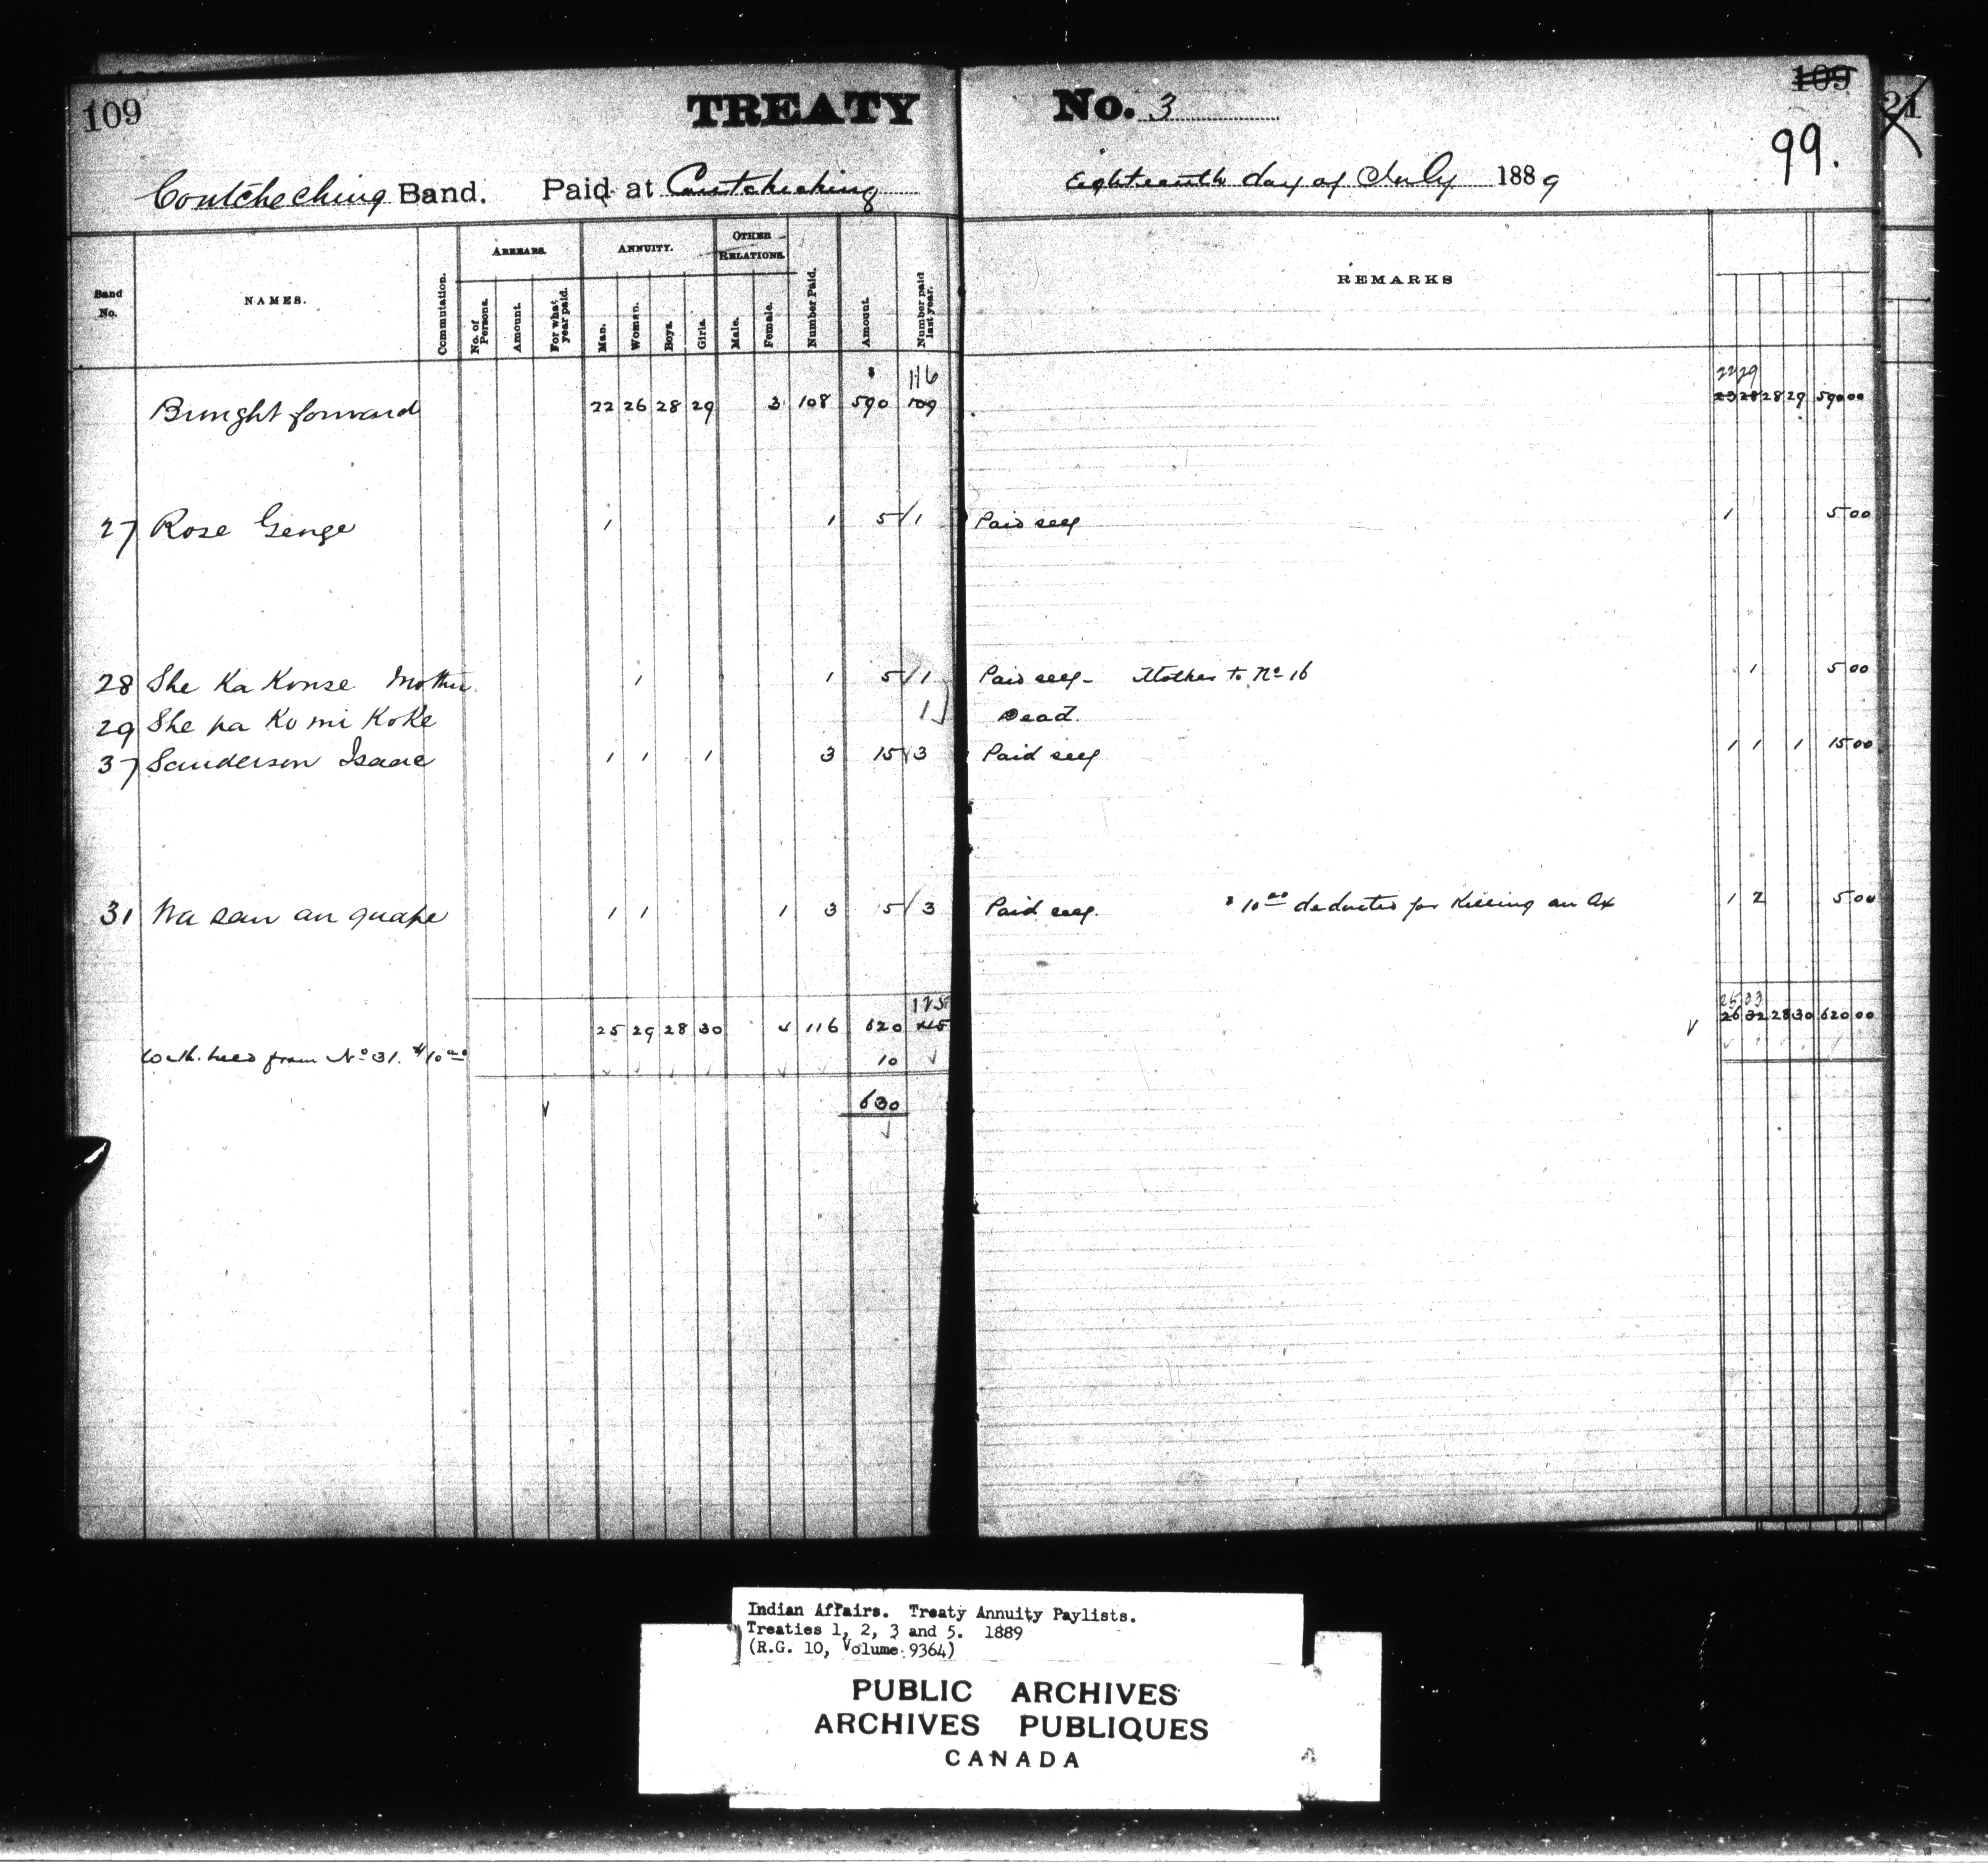 109 TREATY No. 3 109 21
99.
Coutcheching Band. Paid at Coutcheching Eighteenth day of July 1889
Band No. NAMES. Commutation. ARREARS. No. of Persons. Amount. For what year paid. ANNUITY. Man. Woman. Boys. Girls. OTHER RELATIONS. Male. Female. Number Paid. Amount. Number paid last year. REMARKS
116 22 29
Brought forward 22 26 28 29 3 108 590 109 23 28 28 29 590 00
27 Rose George 1 1 5/1 Paid self 1 5 00
28 She Ka Konse Mother 1 1 5/1 Paid self - Mother to No 16 1 5 00
29 She pa Ko mi Koke 1 Dead.
37 Sanderson Isaac 1 1 1 3 15 3 Paid self 1 1 1 15 00
31 Wa saw an quape 1 1 1 3 5/3 Paid self. $10.00 deducted for Killing an Ox 1 2 5 00
25 33
25 29 28 30 4 116 620 26 32 28 30 620 00
With held from No 31. $10.00 10
630
Indian Affairs. Treaty Annuity Paylists.
Treaties 1, 2, 3 and 5. 1889
(R.G. 10, Volume 9364)
PUBLIC ARCHIVES
ARCHIVES PUBLIQUES
CANADA